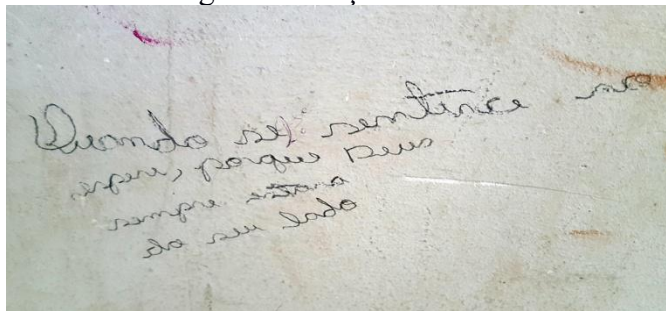 Quando se sentirce
porque Deus
sempre estara
do seu lado